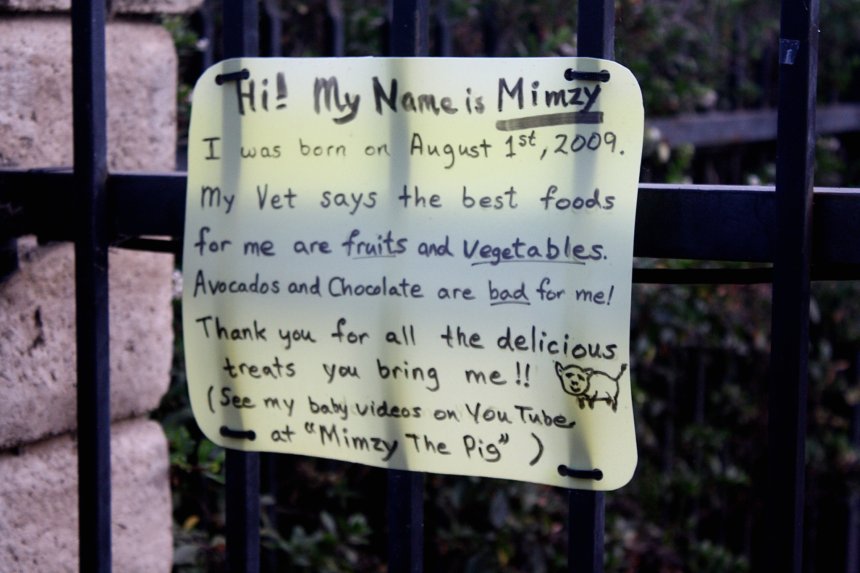 Hi! My Name is Mimzy
I was born on August 1st, 2009.
My Vet says the best foods
for me are fruits and Vegetables.
Avocados and Chocolate are bad for me!
Thank you for all the delicious
treats you bring me!!
(See my baby videos on YouTube
at "Mimzy The Pig")